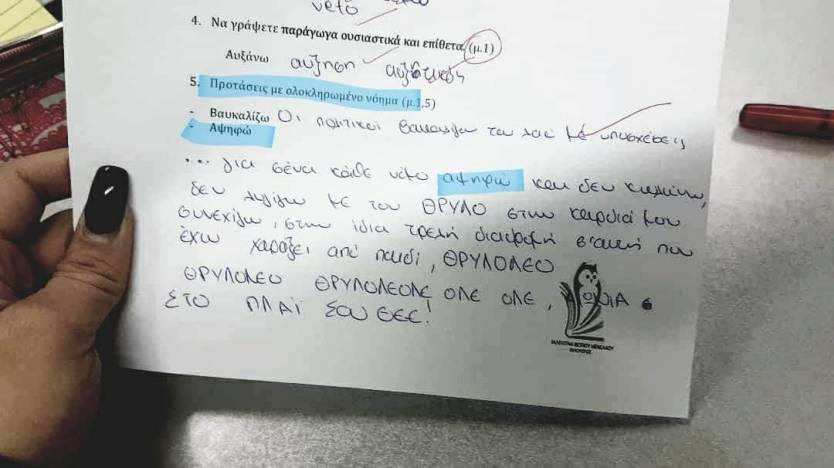 νετο
4. Να γράψετε παράγωγα ουσιαστικά και επίθετα. (μ.1)
Αυξάνω αυξηση αυξητικός
5. Προτάσεις με ολοκληρωμένο νόημα (μ.1,5)
- Βαυκαλίζω Οι πολιτικοί βαυκαλίζω τον λαό με υποσχέσεις
- Αψηφώ
... για σένα κάθε νέτο αψηφώ και δεν κωλώνω,
δεν λυγίζω με τον ΘΡΥΛΟ στην καρδιά μου
συνεχίζω, στην ίδια τρελή διαδρομή σ'αυτή που
έχω χαράξει από παιδί, ΘΡΥΛΟΛΕΟ
ΘΡΥΛΟΛΕΟ ΘΡΥΛΟΛΕΟΛΕ ΟΛΕ ΟΛΕ,
ΣΤΟ ΠΛΑΪ ΣΟΥ ΘΕΕ!